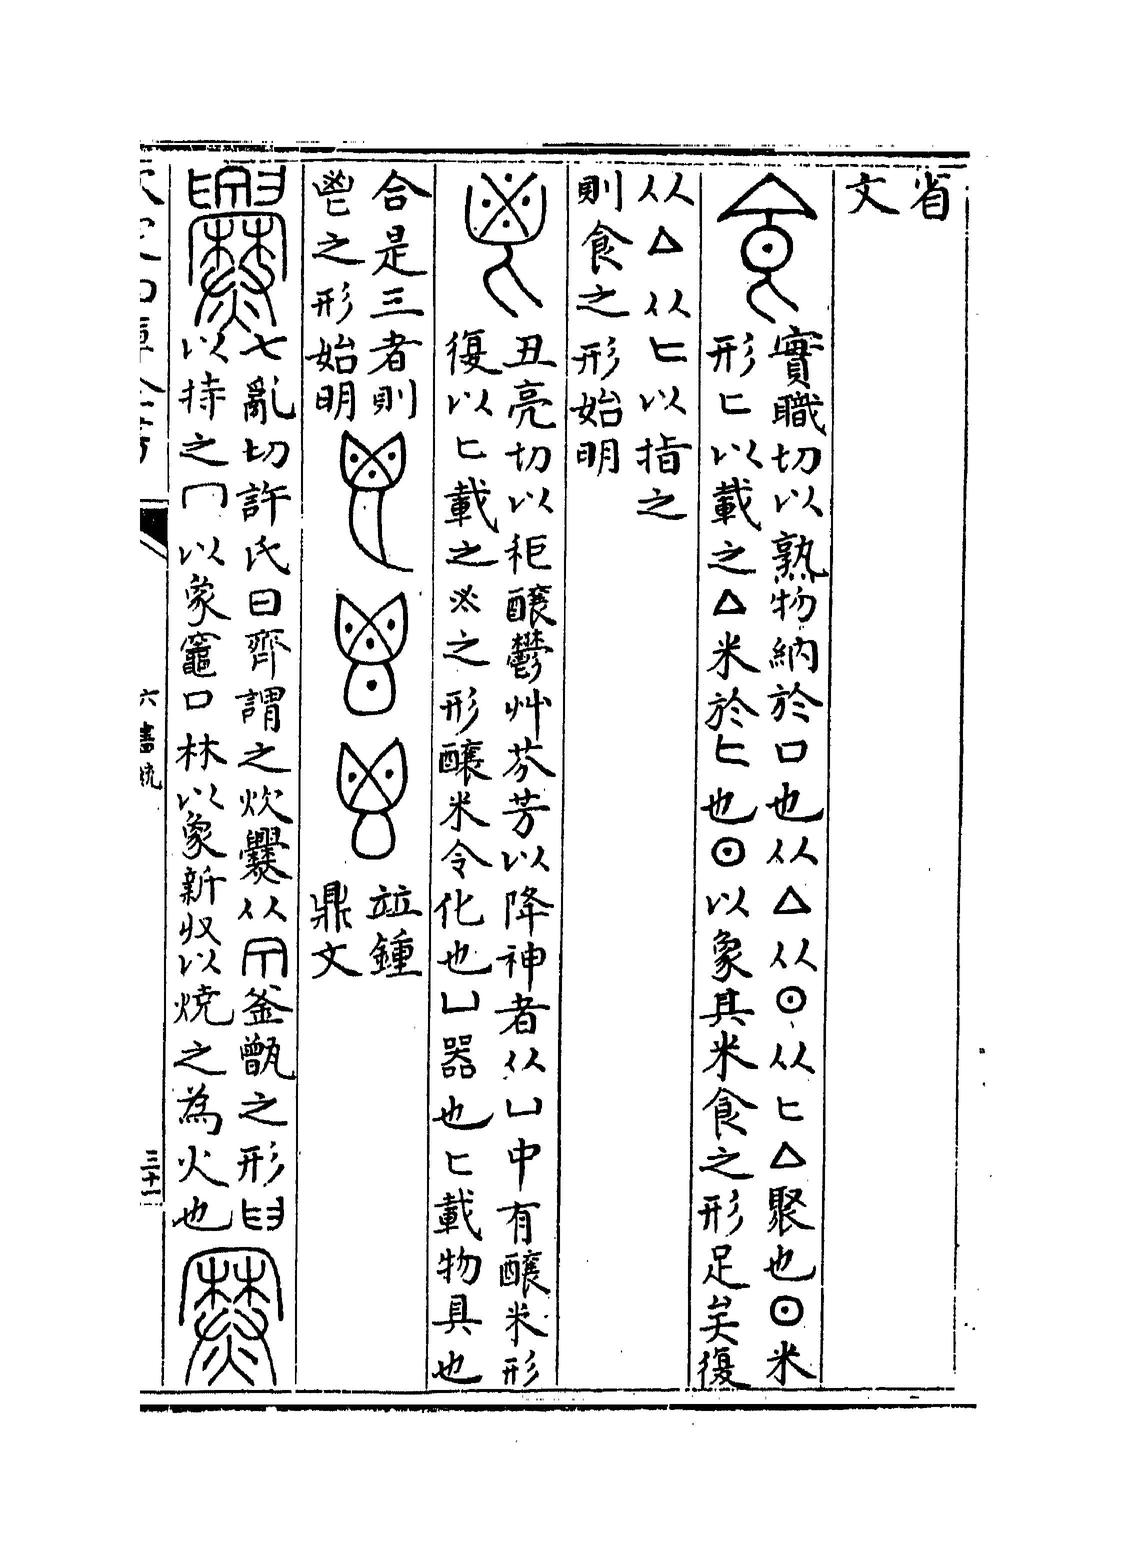 省
文
實職切以熟物納於口也从△从⊙从匕△聚也⊙米
形匕以載之△米於匕也⊙以象其米食之形足矣復
从△从匕以指之
則食之形始明
丑亮切以秬釀鬱艸芬芳以降神者从凵中有釀米形
復以匕載之之形釀米令化也凵器也匕載物具也
合是三者則
鬯之形始明
竝鍾
鼎文
七亂切許氏曰齊謂之炊爨从釜甑之形𦥑
以持之冂以象竈口林以象新収以燒之為火也
六書統
三十一